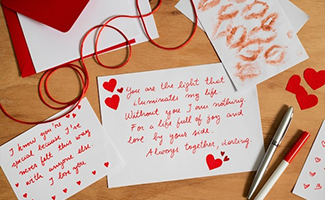 You are the light that
illuminates my life
Without you I am nothing.
For a life full of joy and
love by your side.
Always together, darling.
I know you're
special because I've
never felt this way
with anyone else.
I love you